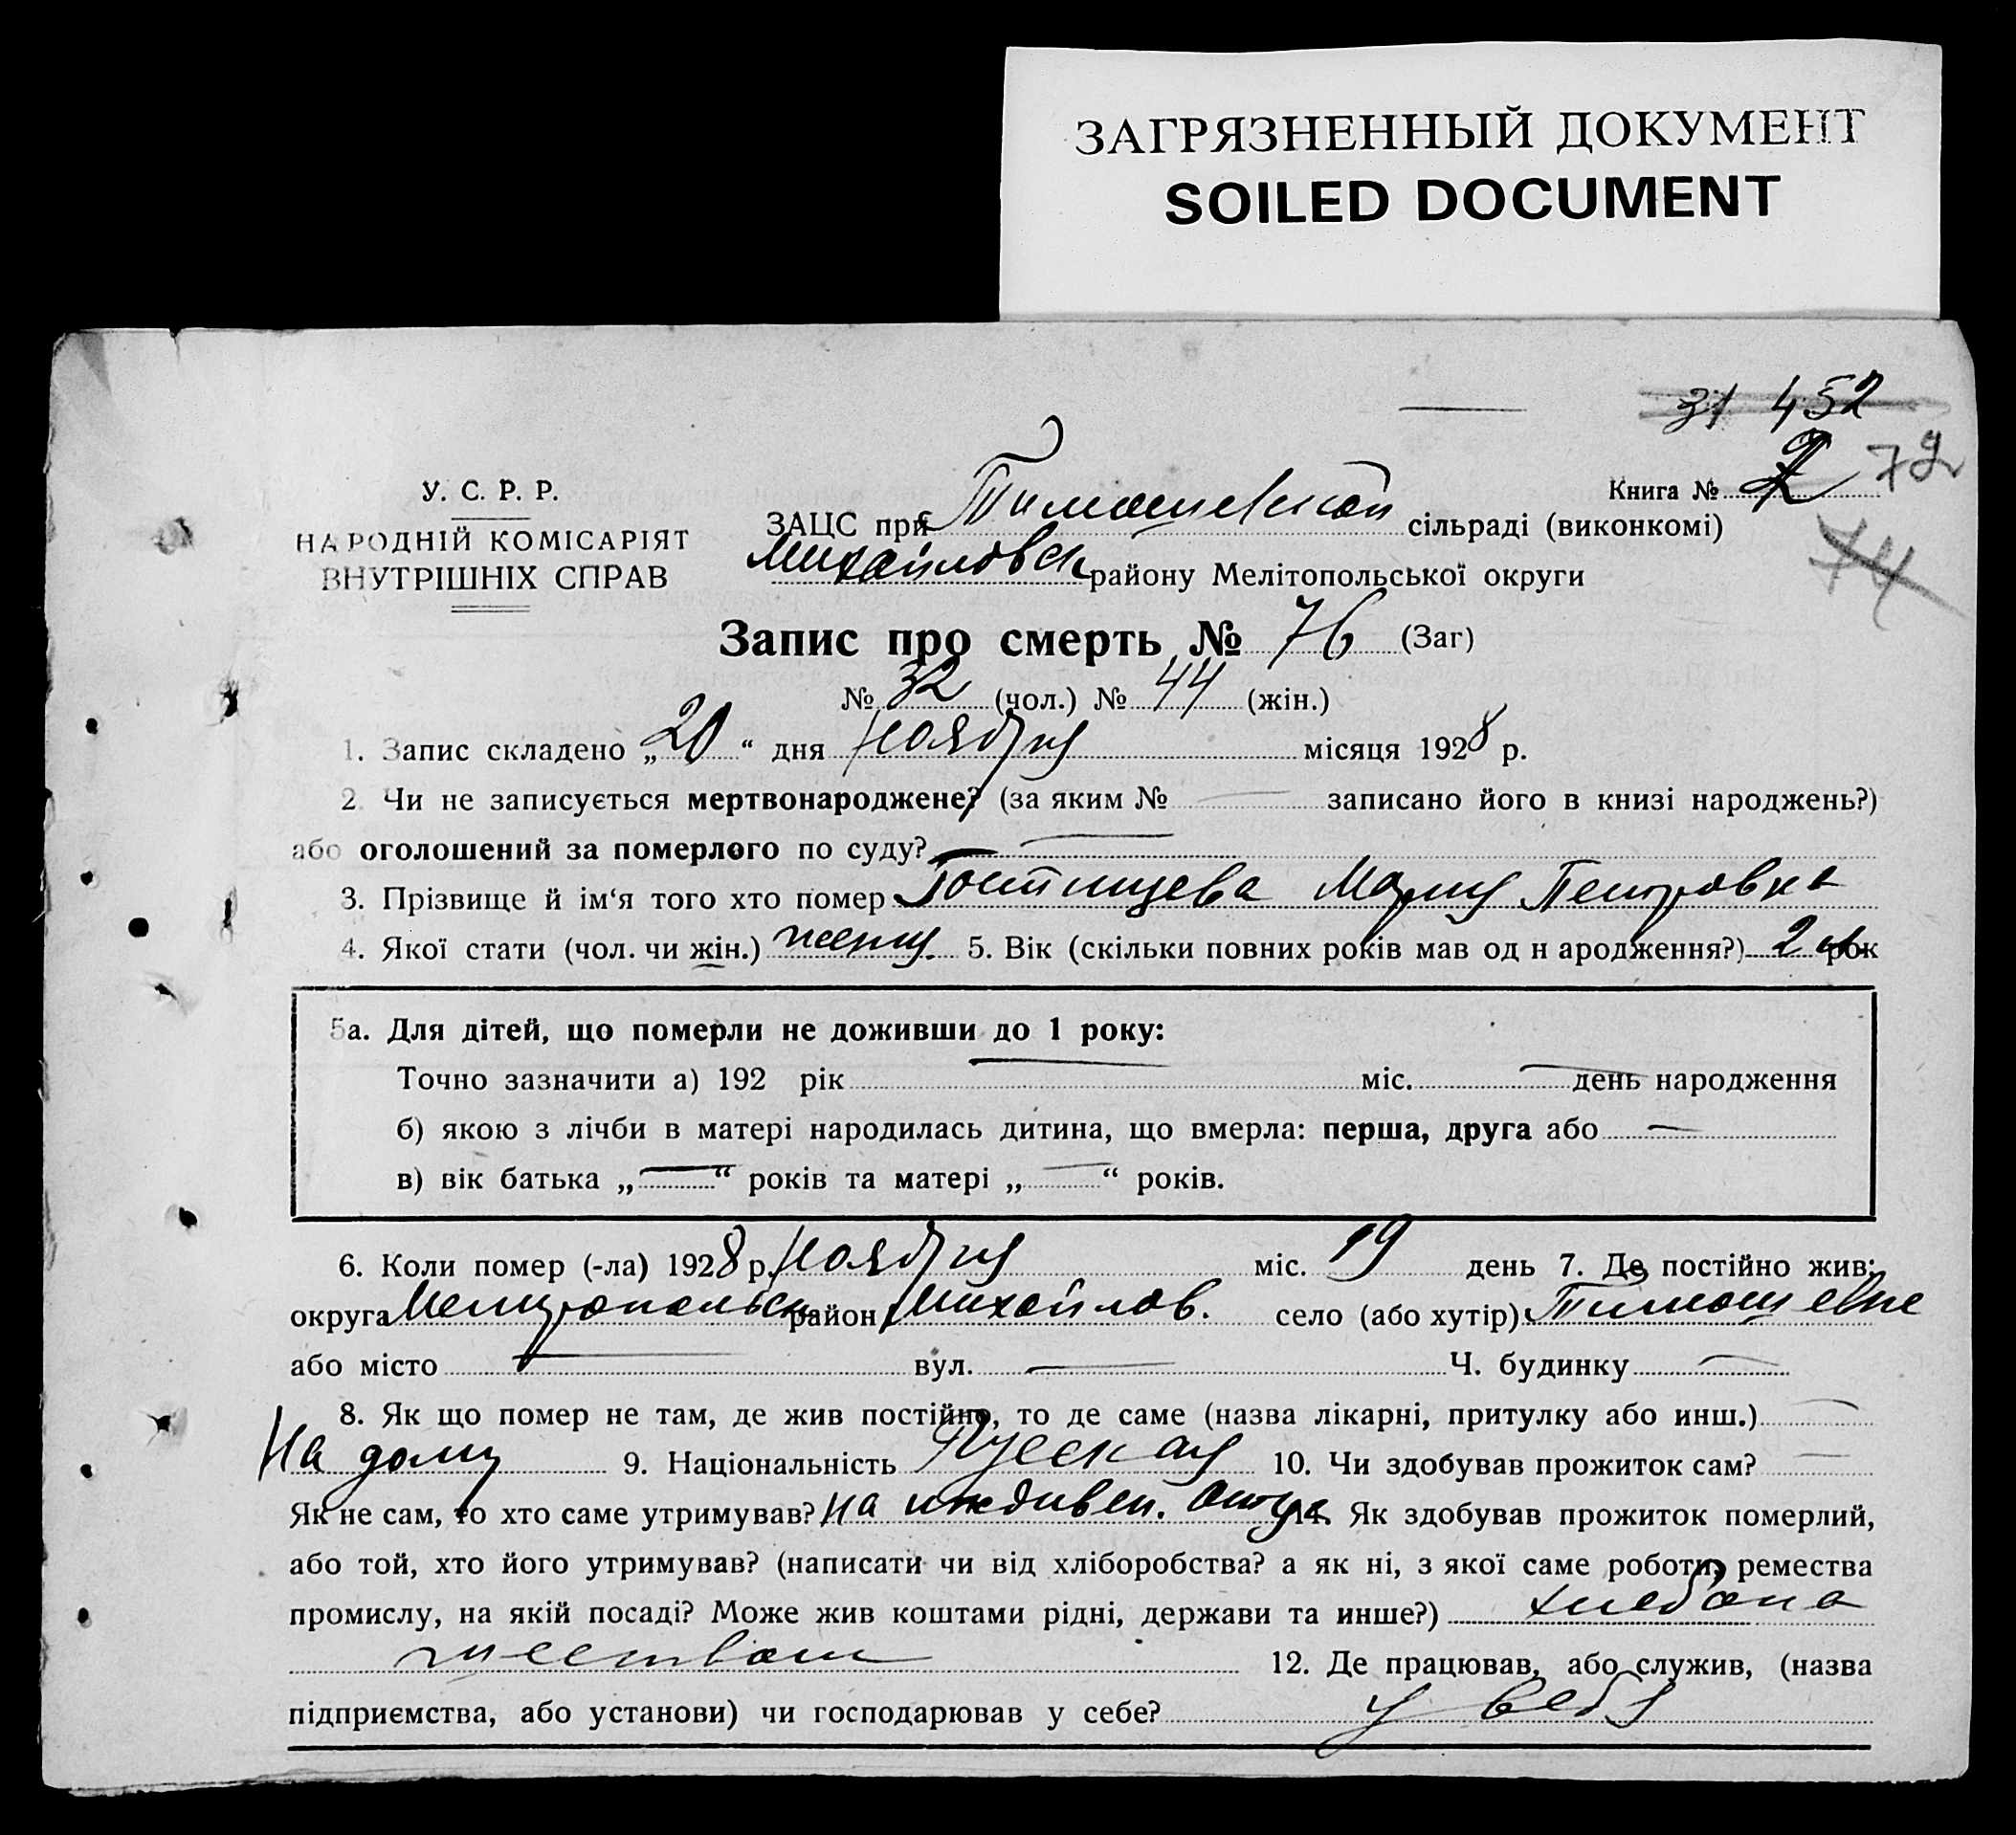 ЗАГРЯЗНЕННЫЙ ДОКУМЕНТ
SOILED DOCUMENT
31 452
Книга № 2 72
74
У. С. Р. Р.
НАРОДНІЙ КОМІСАРІЯТ
ВНУТРІШНІХ СПРАВ
ЗАЦС при Тимошевской сільраді (виконкомі)
Михайловск району Мелітопольської округи
Запис про смерть № 76 (Заг)
№ 32 (чол.) № 44 (жін.)
1. Запис складено „20“ дня ноября місяця 1928 р.
2. Чи не записується мертвонароджене? (за яким № — записано його в книзі народжень?)
або оголошений за померлого по суду? —
3. Прізвище й ім‘я того хто помер Гостищева Мария Петровна
4. Якої стати (чол. чи жін.) 5. Вік (скільки повних років мав од н ародження?) 2 рок
5а. Для дітей, що померли не доживши до 1 року:
Точно зазначити а) 192 рік — міс. — день народження
б) якою з лічби в матері народилась дитина, що вмерла: перша, друга або —
в) вік батька „—“ років та матері „—“ років.
6. Коли помер (-ла) 1928 р. ноября міс. 19 день 7. Де постійно жив:
округа Мелитопольск район Михайлов. село (або хутір) Тимошевке
або місто — вул. — Ч. будинку —
8. Як що помер не там, де жив постійно, то де саме (назва лікарні, притулку або инш.) —
На дому 9. Національність Русская 10. Чи здобував прожиток сам? —
Як не сам, то хто саме утримував? На иждивен. отца 11. Як здобував прожиток померлий,
або той, хто його утримував? (написати чи від хліборобства? а як ні, з якої саме роботи, ремества
промислу, на якій посаді? Може жив коштами рідні, держави та инше?) хлебопа
шеством 12. Де працював, або служив, (назва
підприємства, або установи) чи господарював у себе? у себя